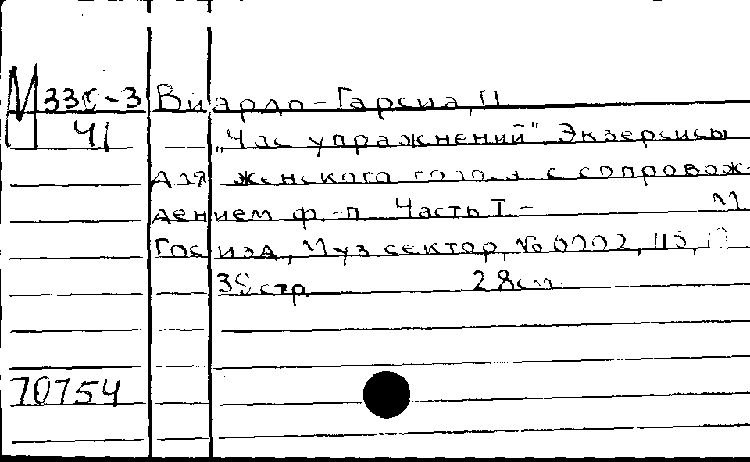 М 33х-3 Виардо-Гарсиа, П
Ч1 „Час упражнений". Экзерсисы
для женского голоса с сопровож-
дением ф.-п. Часть I.- М
Госизд, Муз сектор, №
38 стр 28см
70754